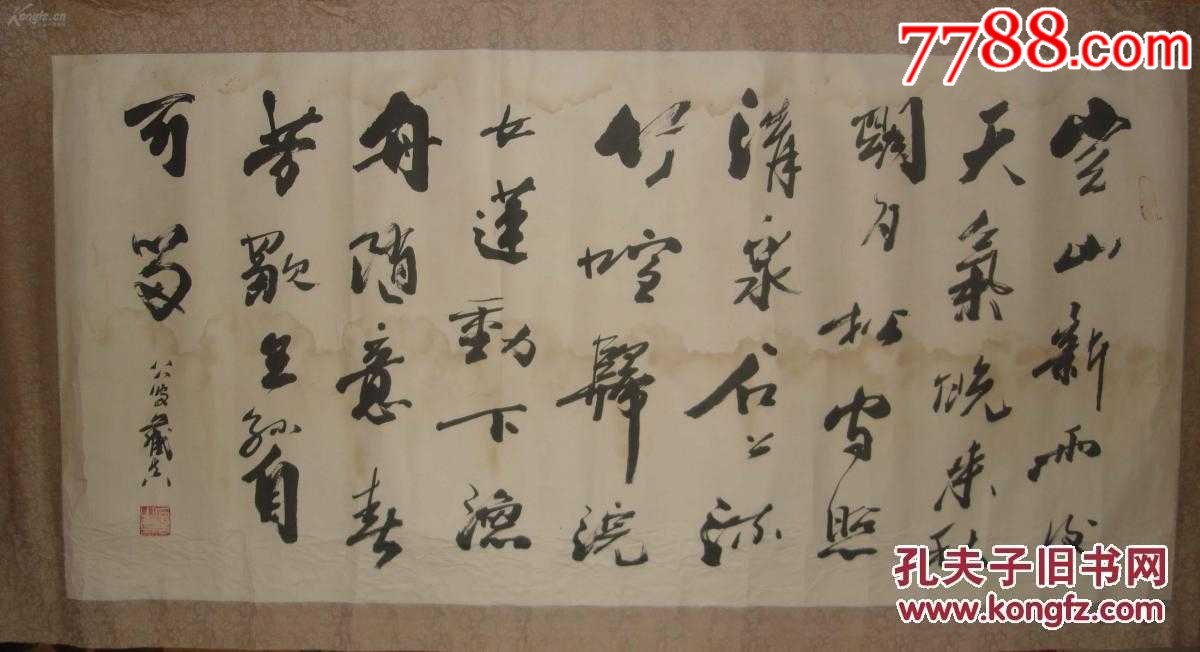 Kongfz.cn
7788.com
空山新雨後
天氣晚來秋
明月松間照
清泉石上流
竹喧歸浣
女蓮動下漁
舟隨意春
芳歇王孫自
可留
孔夫子旧书网
www.kongfz.com